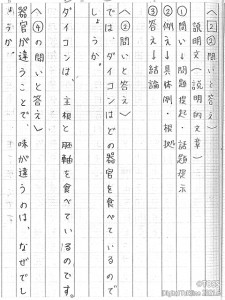 〈②③問いと答え〉
説明文(説明的文章)
①問い→問題提起・話題提示
②例え→具体例・根拠
③答え→結論
〈②問いと答え〉
では、ダイコンはどの器官を食べているので
しょうか。
ダイコンは、主根と胚軸を食べているのです。
〈④の問いと答え〉
器官が違うことで、味が違うのは、なぜでし
ょうか。